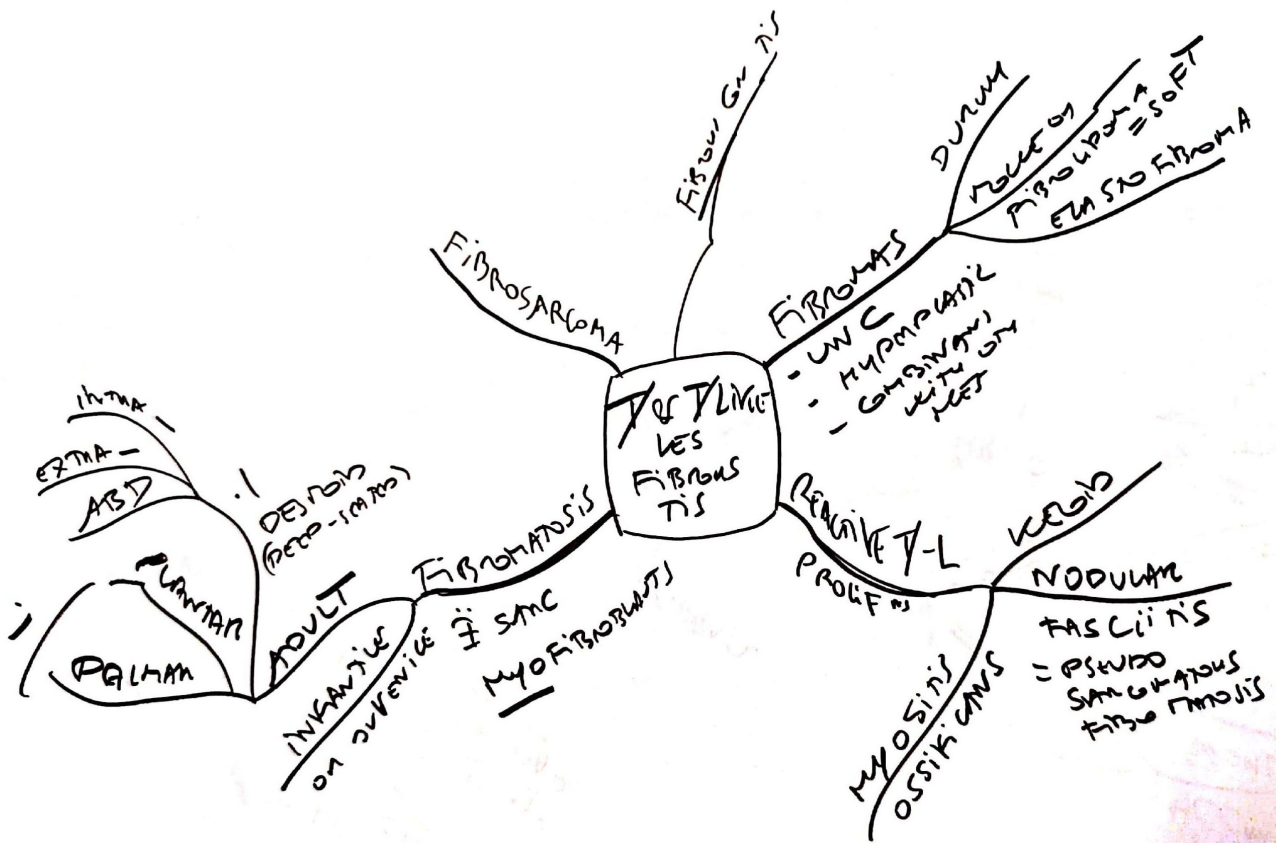 T & T/LIKE
LES
FIBROUS
TIS
FIBROUS GN TIS
FIBROSARCOMA
FIBROMAS
- UNC
- HYPERPLASTIC
- COMBINANS
WITH OR
MES
DURUM
MOLLE OR
FIBROLIPOMA
= SOFT
ELASTOFIBROMA
REACTIVE T-L
PROLIF NS
KELOID
NODULAR
FASCIITIS
= PSEUDO
SARCOMATOUS
FIBROMATOSIS
MYOSITIS
OSSIFICANS
FIBROMATOSIS
SARC
MYOFIBROBLASTS
ADULT
INFANTILE
OR JUVENILE
DESMOID
(DEEP-SEATED)
INTRA -
EXTRA -
ABD
PLANTAR
PALMAR